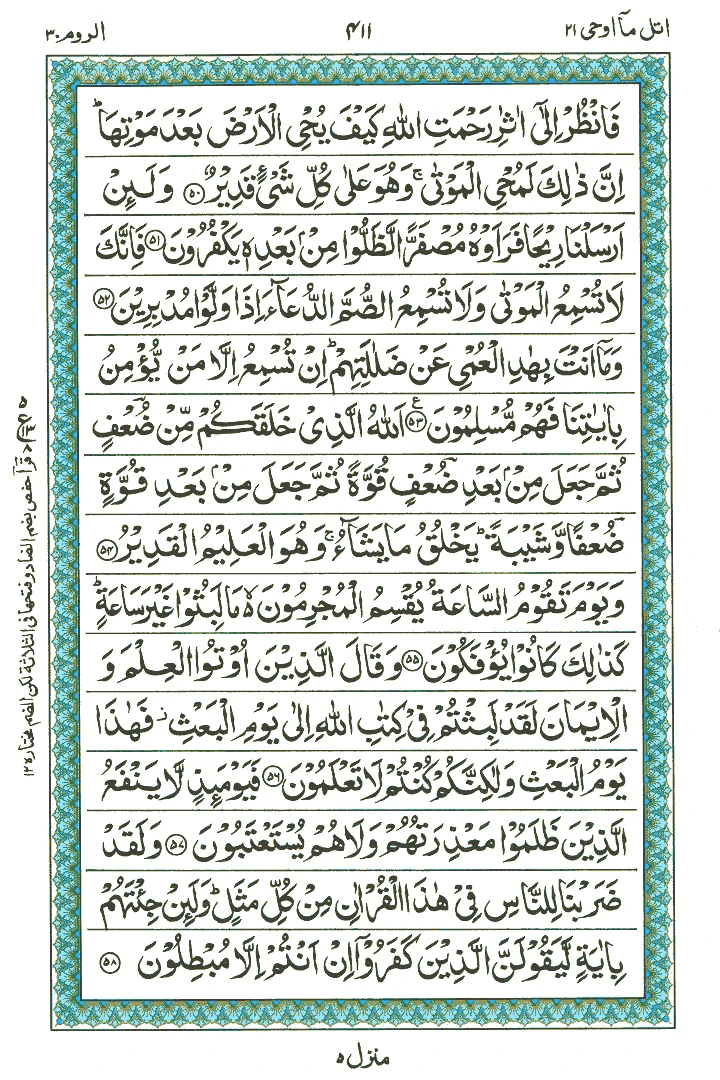 اتل مآ اوحی ۲۱
۴۱۱
الروم ۳۰
فَانْظُرْ اِلٰۤی اٰثٰرِ رَحْمَتِ اللّٰهِ كَیْفَ یُحْیِ الْاَرْضَ بَعْدَ مَوْتِهَا ؕ
اِنَّ ذٰلِكَ لَمُحْیِ الْمَوْتٰی ۚ وَهُوَ عَلٰی كُلِّ شَیْءٍ قَدِیْرٌ ﴿۵۰﴾ وَلَىِٕنْ
اَرْسَلْنَا رِیْحًا فَرَاَوْهُ مُصْفَرًّا لَّظَلُّوْا مِنْۢ بَعْدِهٖ یَكْفُرُوْنَ ﴿۵۱﴾ فَاِنَّكَ
لَا تُسْمِعُ الْمَوْتٰی وَلَا تُسْمِعُ الصُّمَّ الدُّعَآءَ اِذَا وَلَّوْا مُدْبِرِیْنَ ﴿۵۲﴾
وَمَاۤ اَنْتَ بِهٰدِ الْعُمْیِ عَنْ ضَلٰلَتِهِمْ ؕ اِنْ تُسْمِعُ اِلَّا مَنْ یُّؤْمِنُ
بِاٰیٰتِنَا فَهُمْ مُّسْلِمُوْنَ ﴿۵۳﴾ ع اَللّٰهُ الَّذِیْ خَلَقَكُمْ مِّنْ ضُعْفٍ
ثُمَّ جَعَلَ مِنْۢ بَعْدِ ضُعْفٍ قُوَّةً ثُمَّ جَعَلَ مِنْۢ بَعْدِ قُوَّةٍ
ضُعْفًا وَّشَیْبَةً ؕ یَخْلُقُ مَا یَشَآءُ ۚ وَهُوَ الْعَلِیْمُ الْقَدِیْرُ ﴿۵۴﴾
وَیَوْمَ تَقُوْمُ السَّاعَةُ یُقْسِمُ الْمُجْرِمُوْنَ ۙ۬ مَا لَبِثُوْا غَیْرَ سَاعَةٍ ؕ
كَذٰلِكَ كَانُوْا یُؤْفَكُوْنَ ﴿۵۵﴾ وَقَالَ الَّذِیْنَ اُوْتُوا الْعِلْمَ وَ
الْاِیْمَانَ لَقَدْ لَبِثْتُمْ فِیْ كِتٰبِ اللّٰهِ اِلٰی یَوْمِ الْبَعْثِ ؗ فَهٰذَا
یَوْمُ الْبَعْثِ وَلٰكِنَّكُمْ كُنْتُمْ لَا تَعْلَمُوْنَ ﴿۵۶﴾ فَیَوْمَىِٕذٍ لَّا یَنْفَعُ
الَّذِیْنَ ظَلَمُوْا مَعْذِرَتُهُمْ وَلَا هُمْ یُسْتَعْتَبُوْنَ ﴿۵۷﴾ وَلَقَدْ
ضَرَبْنَا لِلنَّاسِ فِیْ هٰذَا الْقُرْاٰنِ مِنْ كُلِّ مَثَلٍ ؕ وَلَىِٕنْ جِئْتَهُمْ
بِاٰیَةٍ لَّیَقُوْلَنَّ الَّذِیْنَ كَفَرُوْۤا اِنْ اَنْتُمْ اِلَّا مُبْطِلُوْنَ ﴿۵۸﴾
قرأ حفص بضم الضاد وفتحها فی الثلاثة لکن الضم مختاره ۱۲
منزل ۵